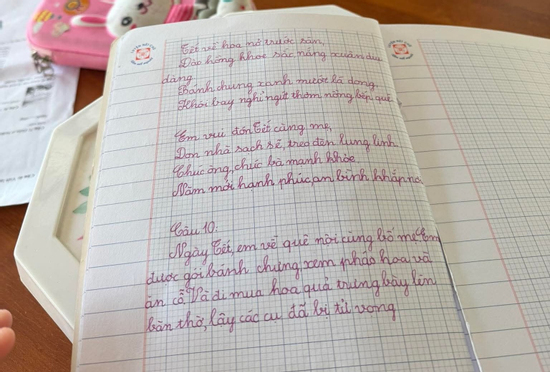 Tết về hoa nở trước sân,
Đào hồng khoe sắc nắng xuân dịu
dàng
Bánh chưng xanh mướt lá dong
Khói bay nghi ngút thơm nồng bếp quê
Em vui đón Tết cùng mẹ,
Dọn nhà sạch sẽ, treo đèn lung linh
Chúc ông, chúc bà mạnh khỏe
Năm mới hạnh phúc, an bình khắp nơi.
Câu 10:
Ngày Tết, em về quê nội cùng bố mẹ. Em
được gói bánh chưng, xem pháo hoa và
ăn cỗ. Và đi mua hoa quả trưng bày lên
bàn thờ, lấy các cụ đã bị tử vong